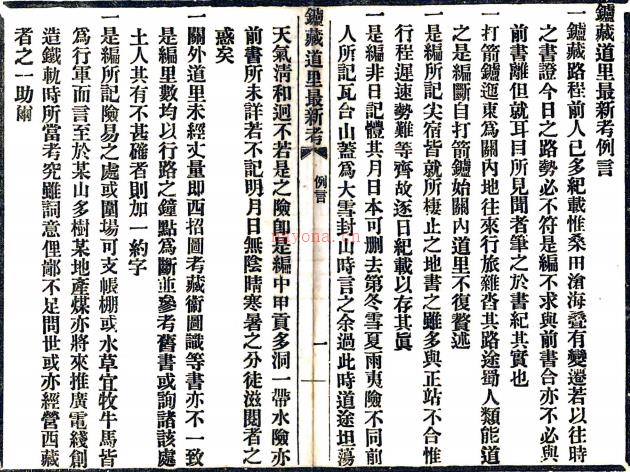 鑪藏道里最新考例言
一鑪藏路程前人已多紀載惟桑田滄海疊有變遷若以往時
之書證今日之路勢必不符是編不求與前書合亦不必與
前書離但就耳目所見聞者筆之於書紀其實也
一打箭鑪迤東爲關內地往來行旅雜沓其路途蜀人類能道
之是編斷自打箭鑪始關內道里不復贅述
一是編所記尖宿皆就所棲止之地書之雖多與正站不合惟
行程遲速勢難等齊故逐日紀載以存其眞
一是編非日記體其月日本可刪去第冬雪夏雨夷險不同前
人所記瓦台山蓋爲大雪封山時言之余過此時道途坦蕩
鑪藏道里最新考
例言
一
天氣淸和迥不若是之險卽是編中甲貢多洞一帶水險亦
前書所未詳若不記明月日無陰晴寒暑之分徒滋閱者之
惑矣
一關外道里未經丈量卽西招圖考藏衛圖識等書亦不一致
是編里數均以行路之鐘點爲斷並參考舊書或詢諸該處
土人其有不甚確者則加一約字
一是編所記險易之處或圍場可支帳棚或水草宜牧牛馬皆
爲行軍而言至於某山多樹某地產煤亦將來推廣電綫創
造鐵軌時所當考究雖詞意俚鄙不足問世或亦經營西藏
者之一助爾